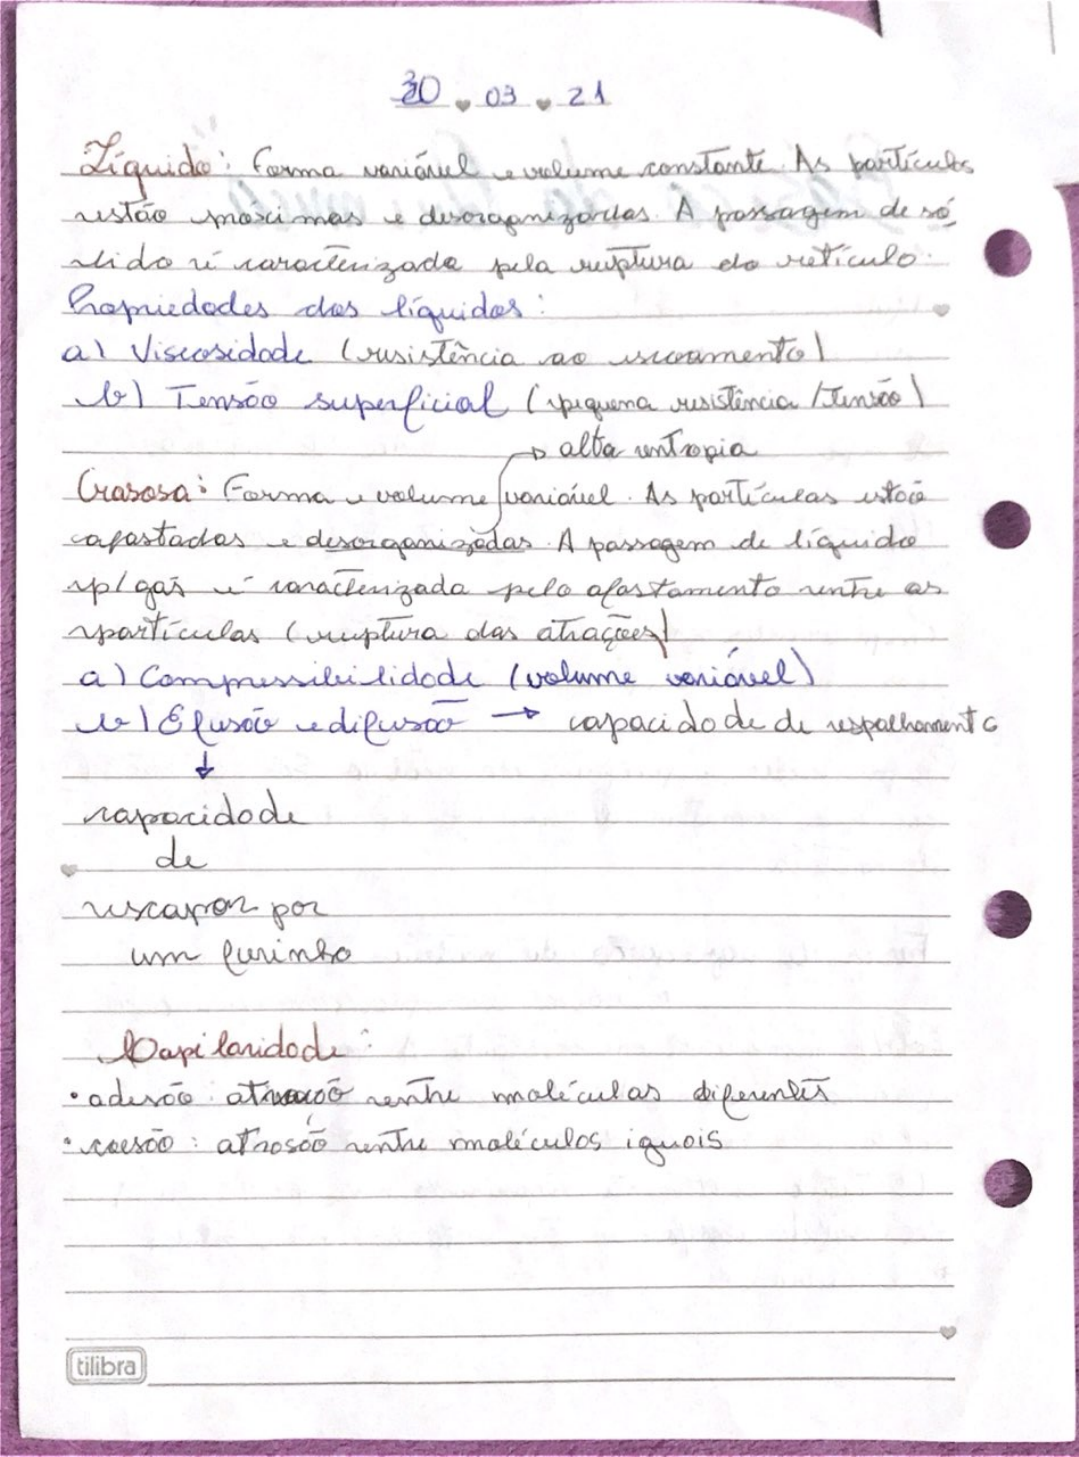 30 . 03 . 21
Líquido: Forma variável e volume constante. As partículas
estão próximas e desorganizadas. A passagem de só
lido é caracterizada pela ruptura do retículo.
Propriedades dos líquidos:
a) Viscosidade (resistência ao escoamento)
b) Tensão superficial (pequena resistência/Tensão)
→ alta entropia
Gasosa: Forma e volume variável. As partículas estão
afastadas e desorganizadas. A passagem de líquido
p/ gás é caracterizada pelo afastamento entre as
partículas (ruptura das atrações)
a) Compressibilidade (volume variável)
b) Efusão e difusão → capacidade de espalhamento
↓
capacidade
de
escapar por
um furinho
Capilaridade:
• adesão: atração entre moléculas diferentes
• coesão: atrosão entre moléculas iguais
tilibra